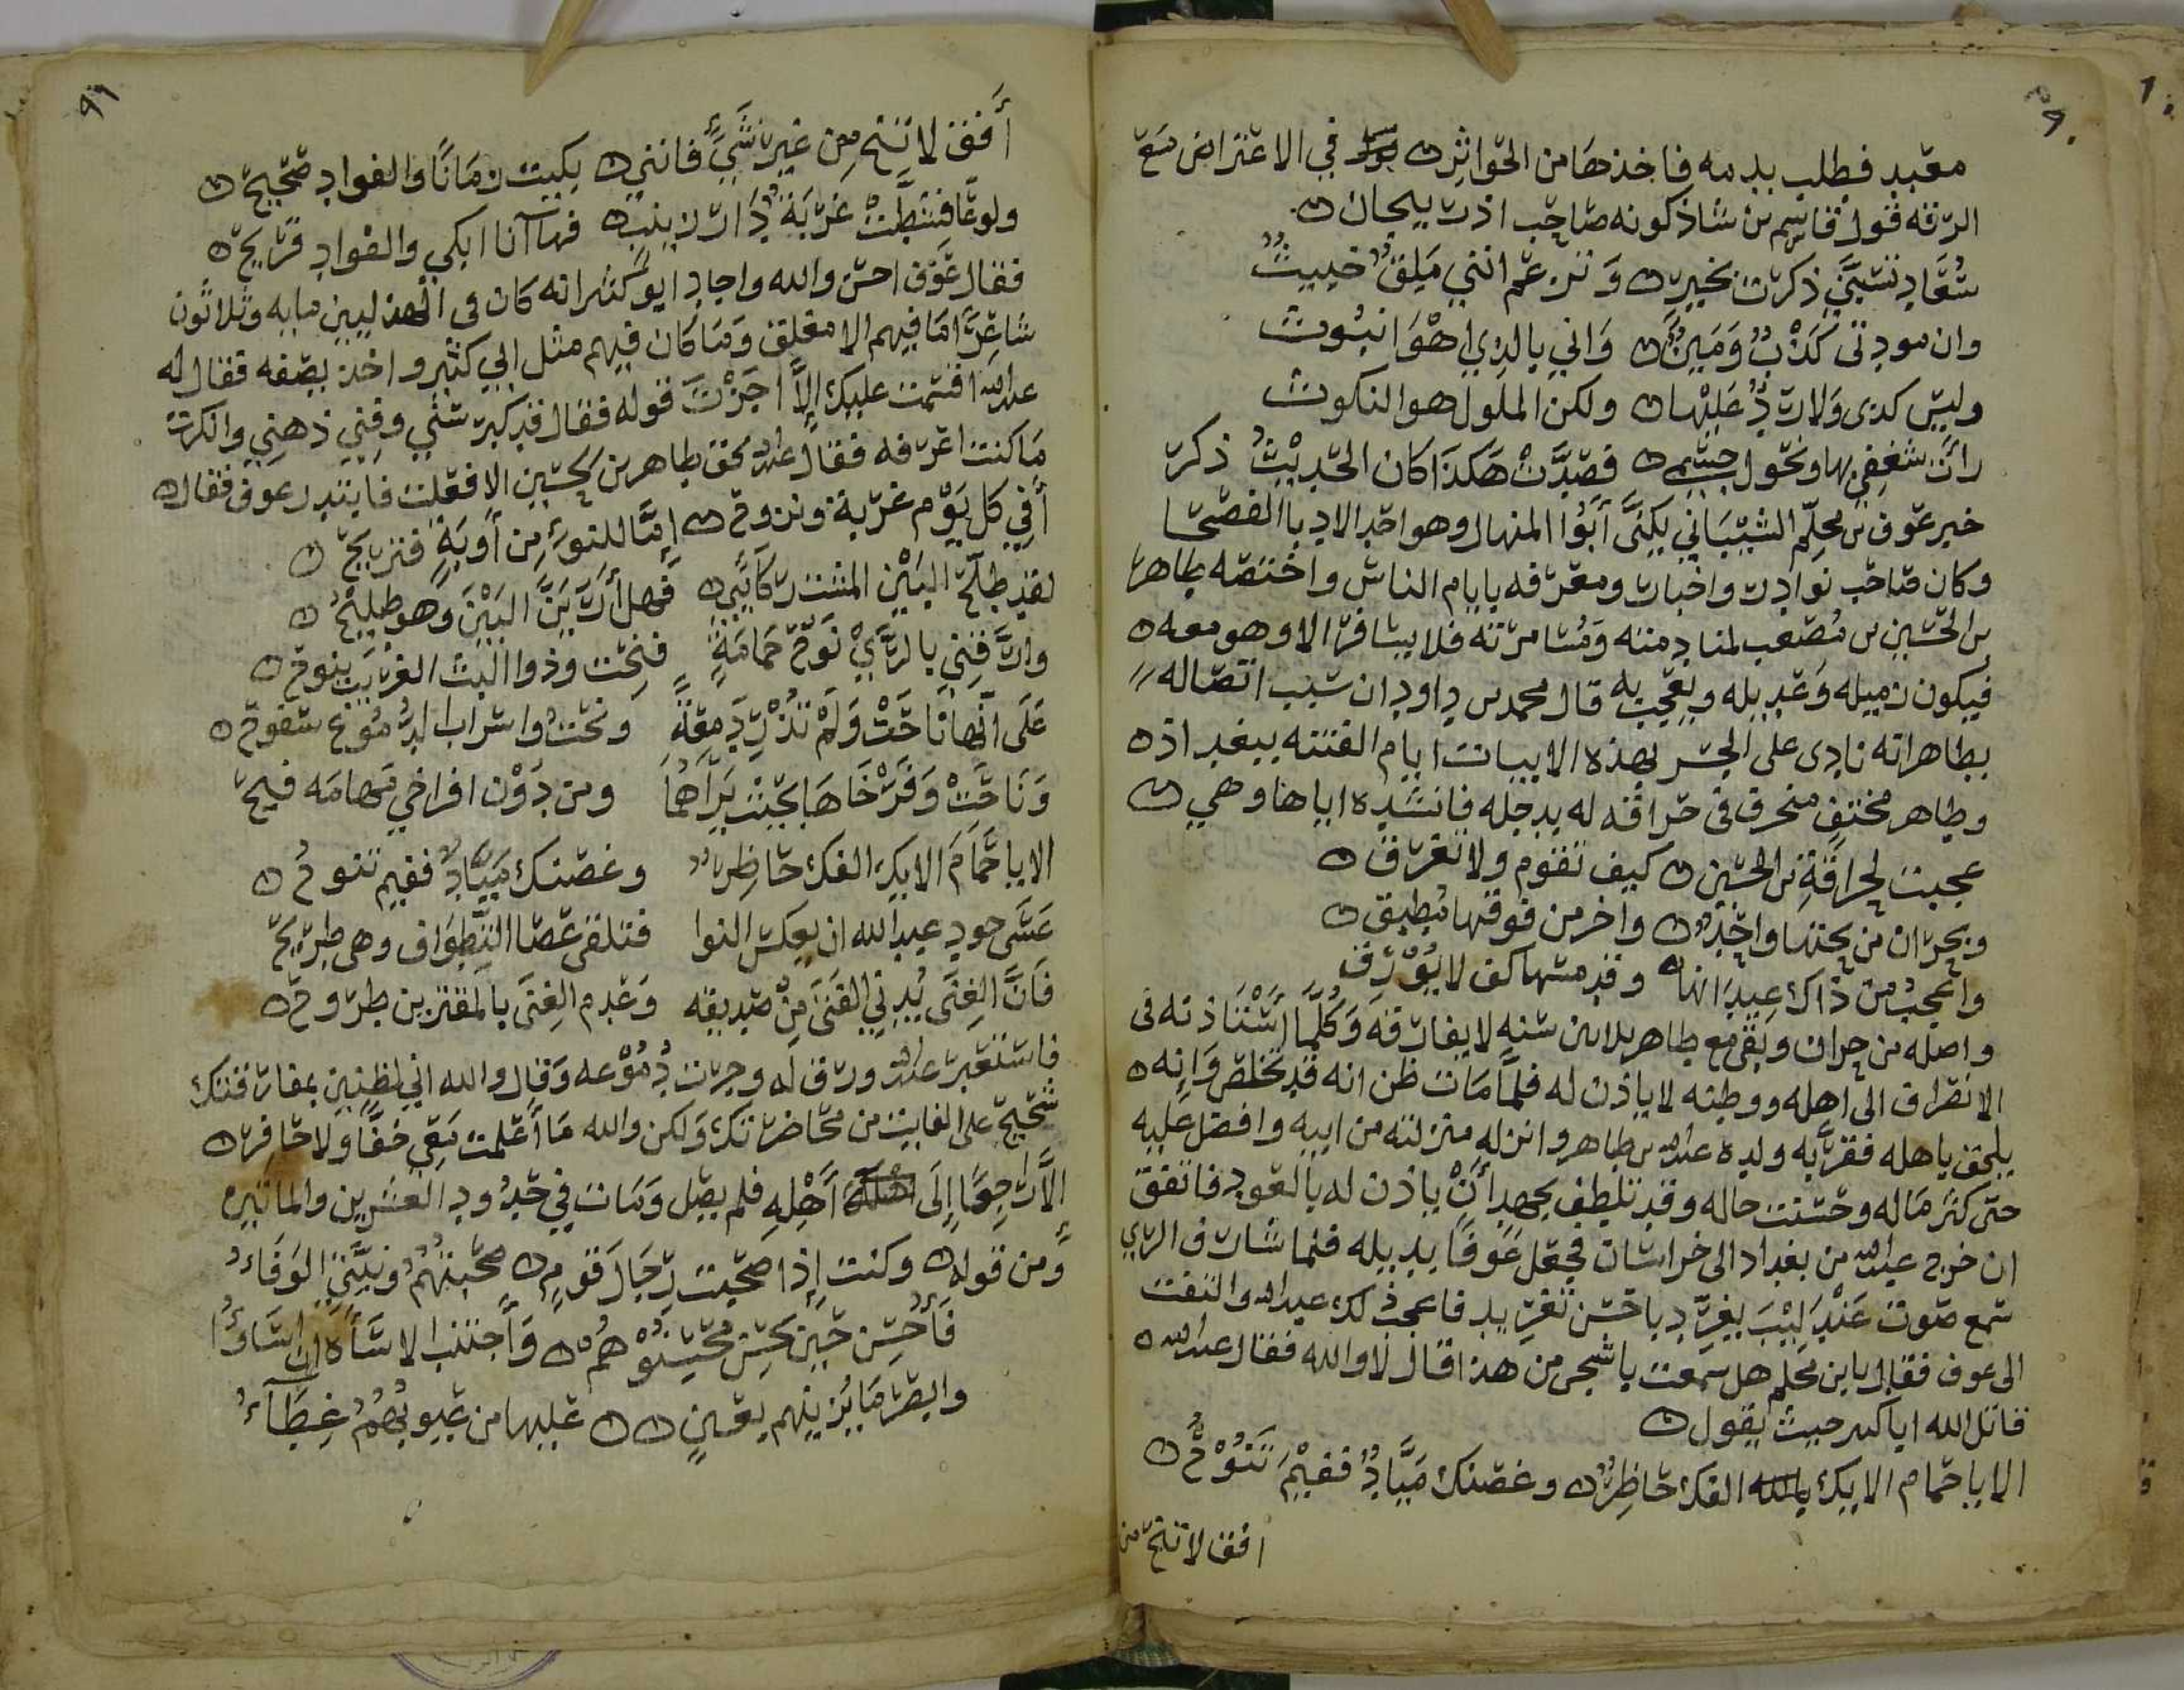 ٩٠
معبد فطلب بدمه فاخذها من الحواثره في الاعتراض مع
الرقه قول قاسم بن شاذكونه صاحب اذربيجان
سُعَادِ تسبَّني ذكرت بخيرٍ وتزعم انني مَلِقٌ خبيثُ
وان مودتى كَذْبٌ وَمَيْنٌ وَاني بالذي اهْوَا نبُوث
وليس كدى وَلارَدٌّ عَلَيْها ولكن الملول هو النكوث
رأت شغفي بها ونحول جسمي فصدَّتْ هكذَا كان الحديثُ ذكر
خبر عوف بن محلِّم الشيبَاني يكنَّى أبَوُا المنهال وهو احد الادبا الفصحا
وكان صاحب نوادر واخبار ومعرفه بايام الناس واختصه طاهر
بن الحسين بن مُصْعب لمنادمته وَمُسَامرته فلا يسافر الا وهو معه
فيكون زميله وَعديله ويعجب به قال محمد بن داود ان سبب اتصاله
بطاهر انه نادى على الجسر بهذه الابيات ايام الفتنه ببغداذ
وطاهر منحرف فى حراقه له بدجله فانشده اياها وهي
عجبت لحراقةِ بن الحسين كيف تقوم ولا تغرق
وبحران من تحتها واحدٌ واخر من فوقها مُطبق
واعجبُ من ذاك عِيدَانها وقد مسها كف لا يُوْرق
واصله من حران وبَقى مع طاهر ثلاثين سنه لا يفارقه وَكُلّمَا اسْتَاذنه فى
الانصراف الى اهله ووطنه لا ياذن له فلمَّا مَات ظن انه قد تخلص وَانه
يلحق باهله فقرَّبه ولده عبدالله بن طاهر وانزله منزلته من ابيه وافضل عليه
حتى كثر مَاله وحسنت حاله وقد تلطف بجهد أَنْ ياذن له بالعود فاتفق
ان خرج عبدالله من بغداد الى خراسان فجعل عَوفًا بديله فلما شارف الري
سمع صوت عَنْدَليْبَ يغرِّد باحسن تغريد فاعجب ذلك عبدالله والتفت
الى عوف فقال يا بن محلم هل سمعت باشجى من هذا قال لا والله فقال عبدالله
قاتل الله ابا كبير حيث يقول
الا يا حمام الايك الفك حَاضِرٌ وغصنك مَيَّادٌ ففيْمَ تَنُوْحُ
افق لا تنح من
٩١
أَفق لا تنح مِن غير شَيءٍ فانني بكيت زمَانًا والفواد صحيح
ولوعًا فشطَّتْ غربَة دَار زينب فها أنا ابكي والفواد قريح
فقال عَوف احسن والله واجاد ابو كثير انه كان فى الهذليين مايه وثلاثون
شَاعِرًا مَا فيهم الا مفلق وَمَا كان فيهم مثل ابي كثير واخذ يصفه فقال له
عبدالله اقسمت عليك إلاَّ اجَزْتَ قوله فقال قد كبر سني وفني ذهني وانكرت
مَا كنت اعرفه فقال عبدالله بحق طاهر بن الحسين الا فعلت فابتدر عوف فقال
أَفي كل يَوْم غربة ونزوح إمَّا للنوى مِن أوبَةٍ فتريحُ
لقد طلَّح البَيْن المشت ركَائبي فهل أَرَيَنَّ البَيْنَ وَهو طليْحُ
وارَّقنِي بالرَّيْ نَوْحُ حَمَامَةٍ فنحت وذوا البث الغريب ينوح
عَلَى انَّها نَاحَتْ وَلَمْ تُذْرِ دَمعَةً ونحْتُ واسراب الدُّمُوع سفوح
وَنَاحَتْ وَفَرْخَاهَا بحيْث تَرَاهُمَا ومن دَوْن افراخي مَهامَه فيح
الا يا حَمَامَ الايك الفك حَاضِرٌ وغصنك مَيَّادٌ ففيم تنوحُ
عَسَى جود عبد الله ان يعكس النوا فتلقى عَصَا التَّطوَاف وهى طريح
فَانَّ الغِنَى يُدْني الفَتَى مِنْ صَديقه وَعدم الغِنى بالمقترين طروح
فاستعبر عبدالله ورق له وجرت دُمُوْعه وَقال والله اني لظنين بمفارقتك
شحيح على الفايت من محاضرتك وَلكن والله مَا أعْلمت مَعِي خفًّا وَلا حَافر
الاَّ رَاجِعًا إِلَى أَهْلِهِ فلم يصل وَمَات فِي حدُوْد العشرين والماتين
وَمن قوله وكنت إذا صحبت رجَال قَومٍ صَحبتهُمْ ونيَّتِيَ الوَفَاءُ
فَأحسن حين يحسِنُ محسِنُوْهُم وَأجتنب الاسَاءَةَ ان اسَاؤُا
وابصر مَا يُرينهم بعَينٍ عَليها من عيُوبهمُ غِطَاءُ